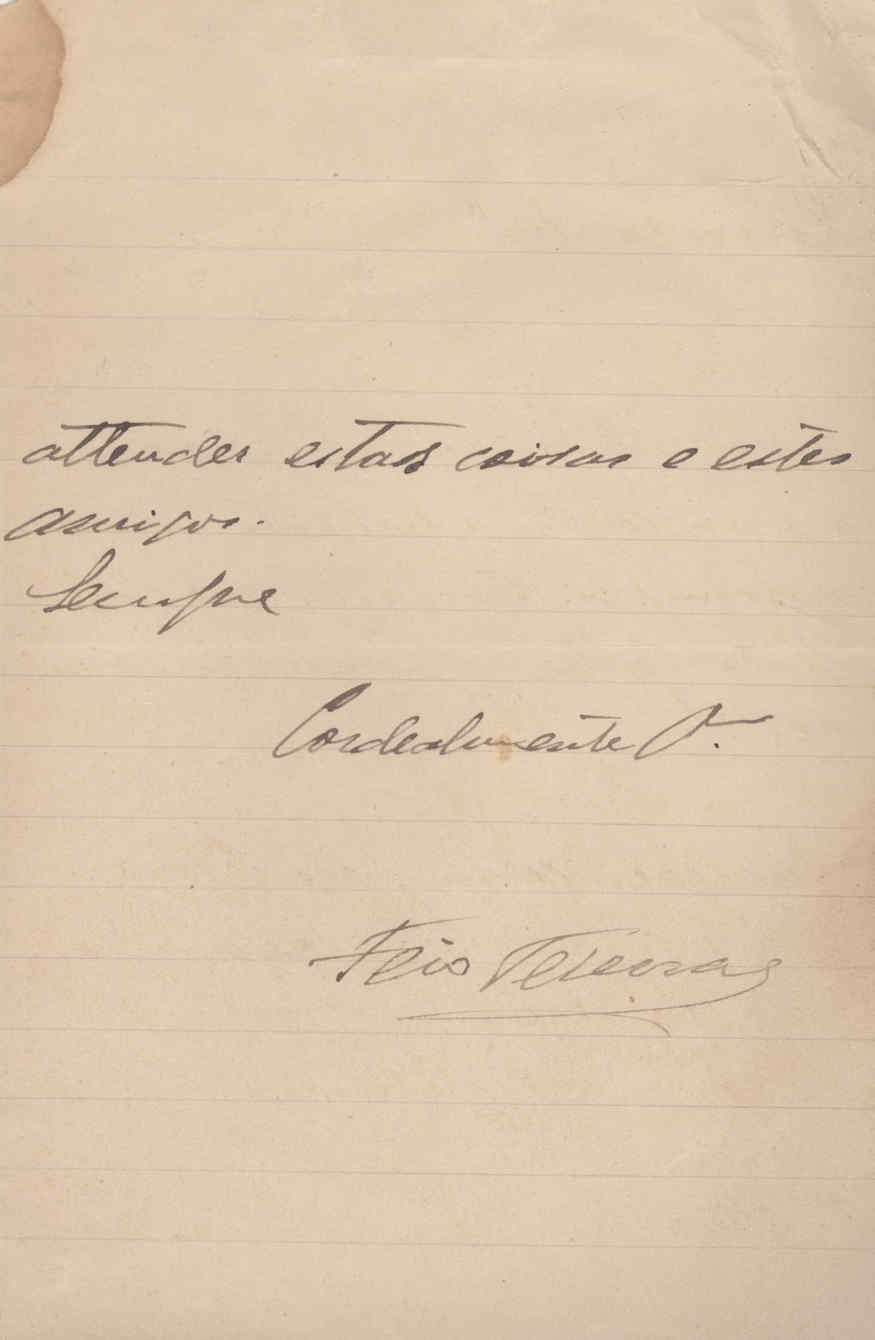 attender estas coisas e estes
amigos.
Sempre
Cordealmente
Feio Terenas